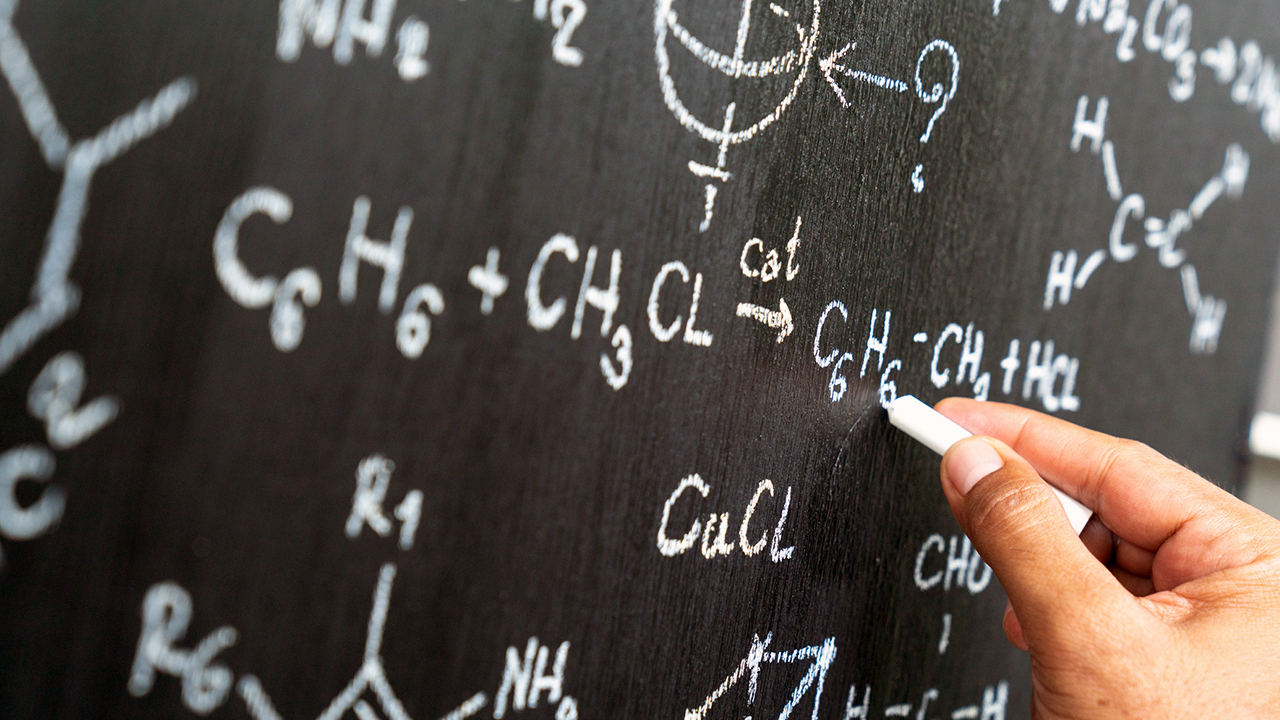 NH₂
₂
?
Na₂CO₃→2N
H H
C=C
H H
cat
C₆H₆+CH₃CL→C₆H₆-CH₃+HCL
2
C
R₁
CuCL
CHO
R₆
NH₂
H-C-H